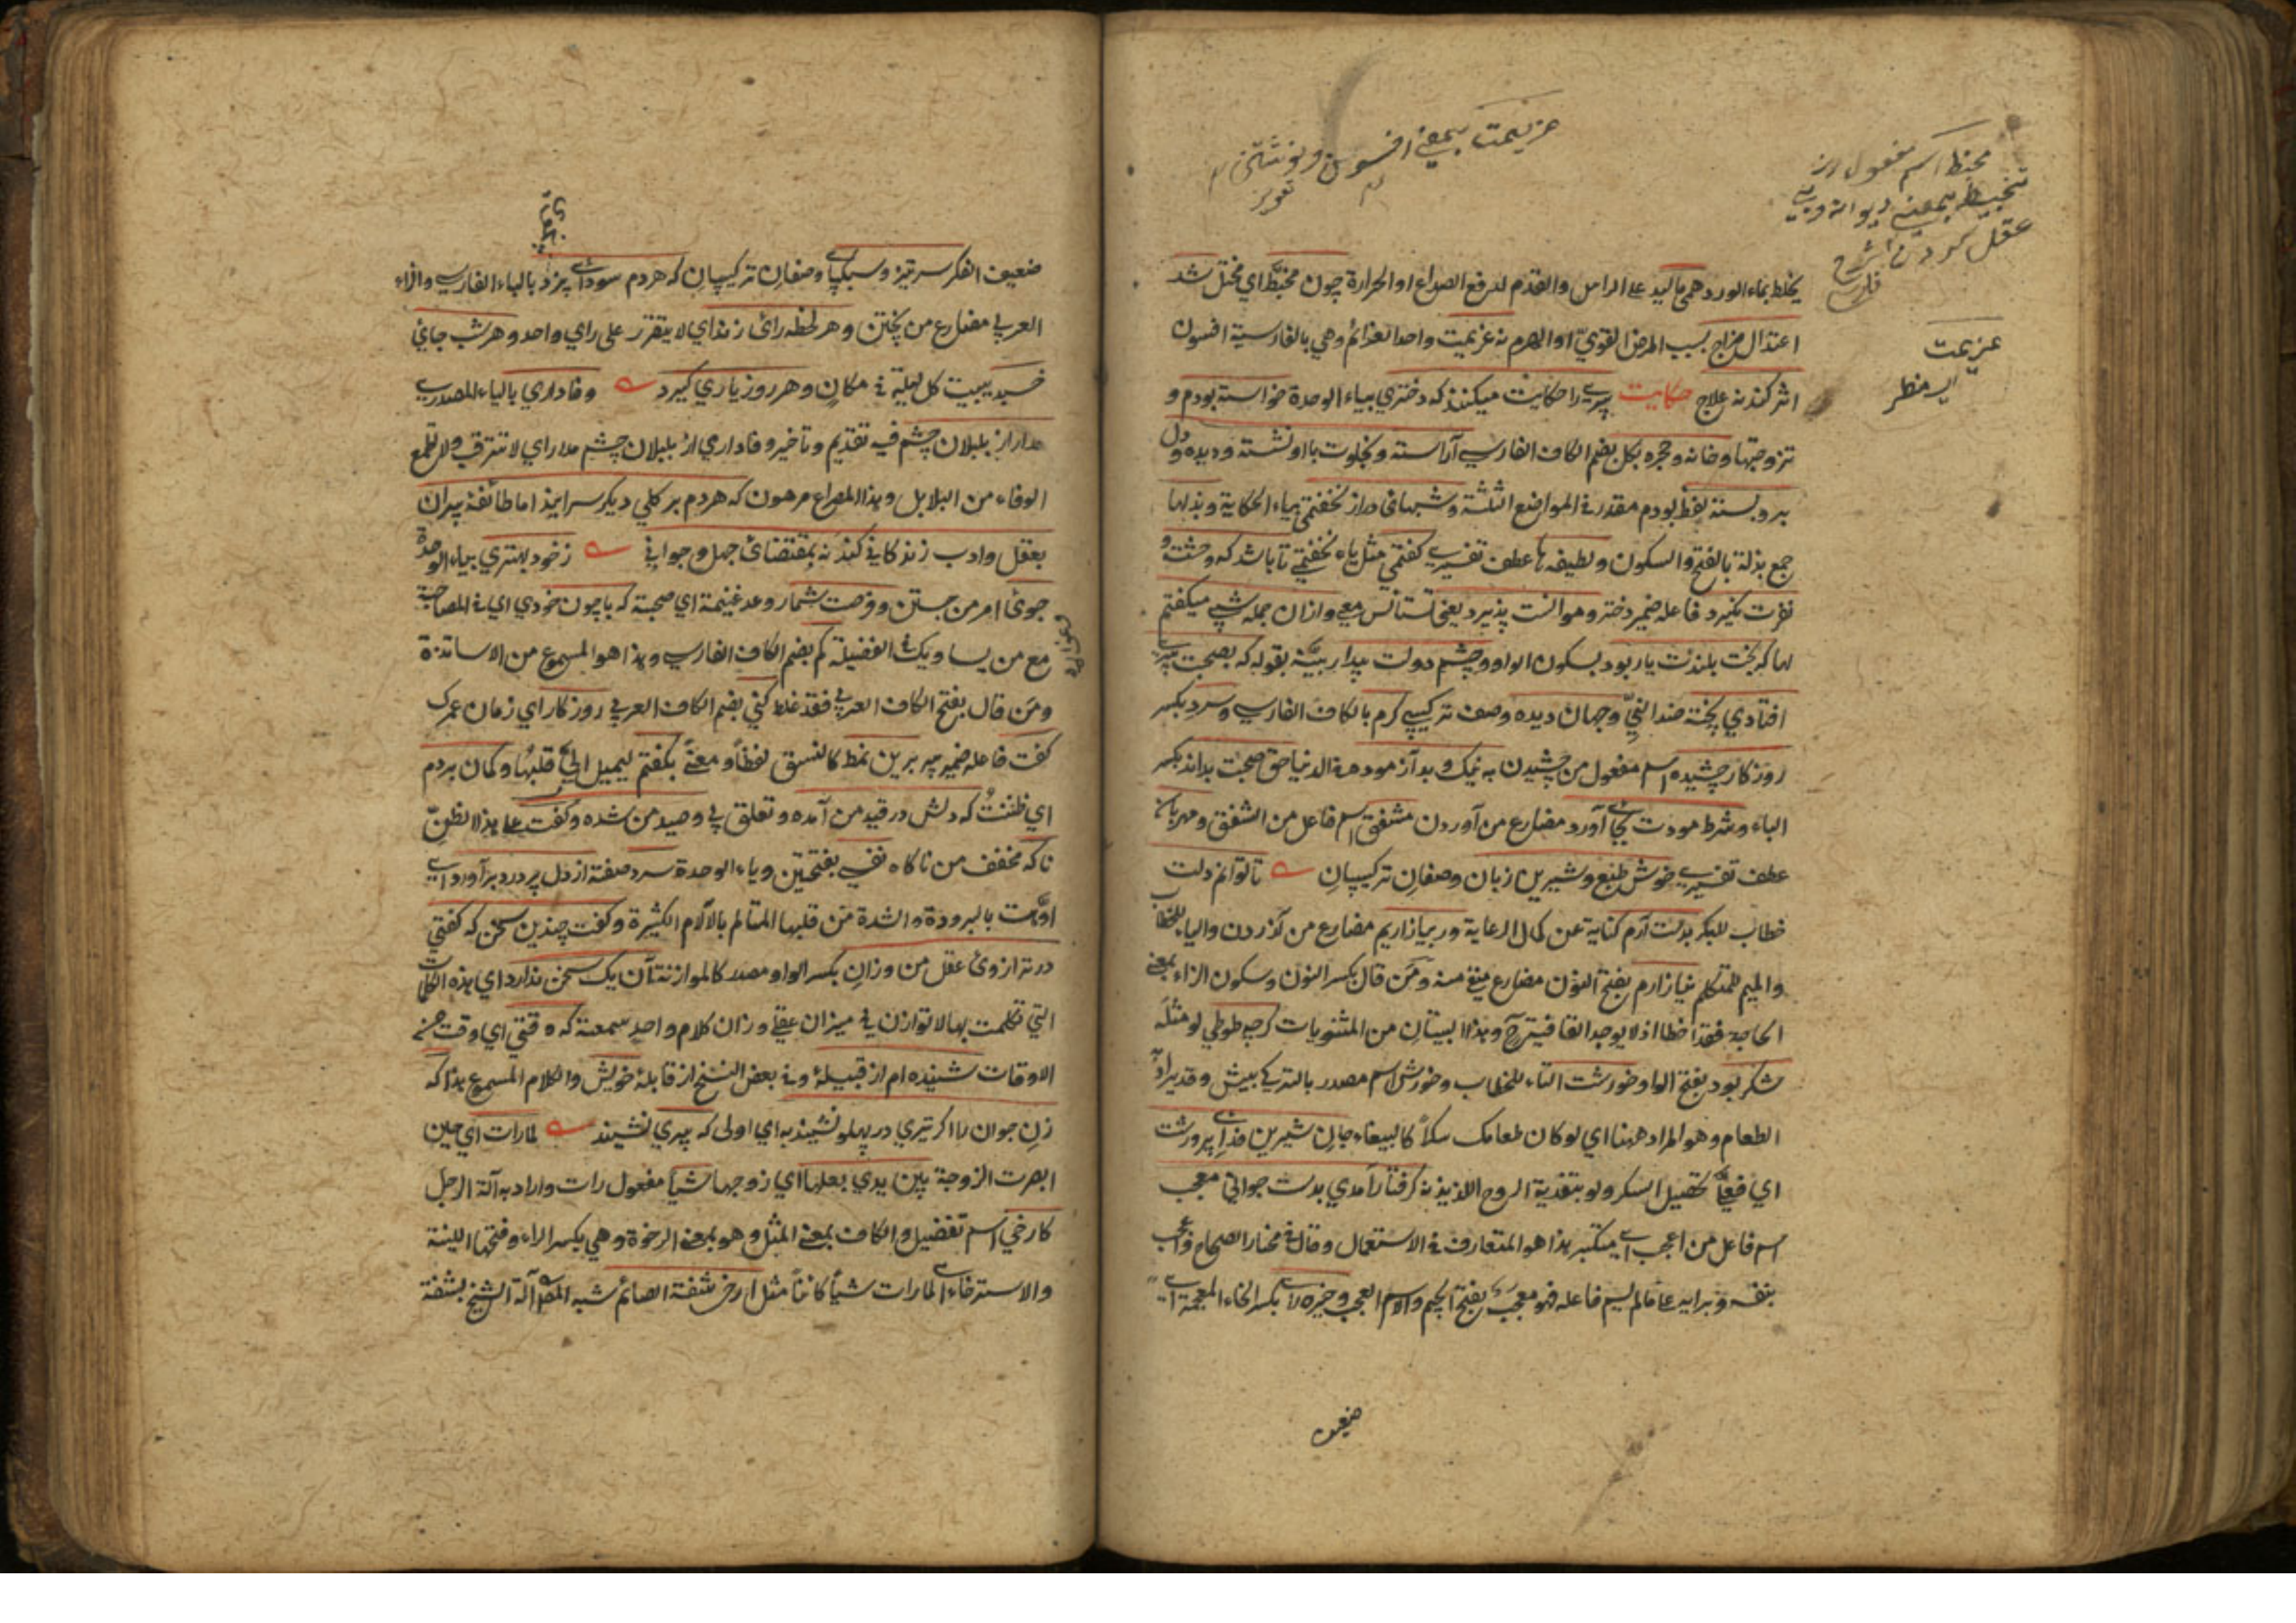 عزیمت بمعنی افسون و نوشتن
تعویذ
مخبط اسم مفعول از
تخبیط بمعنی دیوانه و بی
عقل کردن
عزیمت
یخلط بماء الورد همی مالید علی الراس والقدم لدفع الصداع او الحرارة چون مخبط ای مختل شد
اعتدال مزاج بسبب المرض القوی او الهرم نه عزیمت واحد العزائم وهی بالفارسیة افسون
اثر کند نه علاج حکایت پیری را حکایت میکنند که دختری بیاء الوحدة خواسته بودم و
تزوجتها وخانه وحجره بکل بضم الکاف الفارسی آراسته وبخلوت با او نشسته ودیده ودل
برو بسته لفظ بودم مقدر فی المواضع الثلثة وشبهای دراز نخفتمی بیاء الحکایة وبذلها
جمع بذلة بالفتح والسکون ولطیفه ها عطف تفسیری کفتمی مثل یاء نخفتمی تا باشد که وحشت و
نفرت نکیرد فاعله ضمیر دختر وموانست پذیرد یعنی تستانس معی وازان جمله شبی میکفتم
لها که بخت بلندت یار بود بسکون الواو وچشم دولت بیدار بینه بقوله که بصحبت پیری
افتادی پخته ضد النی وجهان دیده وصف ترکیبی کرم بالکاف الفارسی وسرد بکسر
روزکار چشیده اسم مفعول من چشیدن به نیک وبد آزموده فی الدنیا حق صحبت بداند بکسر
الباء وشرط مودت بجای آورد مضارع من آوردن مشفق اسم فاعل من الشفق ومهربان
عطف تفسیری خوش طبع وشیرین زبان وصفان ترکیبیان تا توانم دلت
خطاب للبکر بدست آرم کنایة عن کمال الرعایة ور بیازاریم مضارع من آزردن والیاء للخطاب
والمیم للمتکلم نیازارم بفتح النون مضارع منفی منه ومن قال بکسر النون وسکون الزاء بمعنی
الحاجة فقد اخطا اذ لا یوجد القافیة ح وهذا البیتان من المثنویات کرچه طوطی لو مثله
شکر بود بفتح الواو خورشت التاء للخطاب وخورش اسم مصدر بالترکی ییش وقد یراد به
الطعام وهو المراد ههنا ای لو کان طعامک سکرا کالببغاء جان شیرین فدای پرورشت
ای فی تحصیل السکر ولو بتفدیة الروح اللذیذ نه کرفتار آمدی بدست جوانی معجب
اسم فاعل من اعجب ای متکبر هذا هو المتعارف فی الاستعمال وقال فی مختار الصحاح واعجب
بنفسه وبرایه علی ما لم یسم فاعله فهو معجب بفتح الجیم والاسم العجب وخیره رای بکسر الخاء المعجمة ای
ضعیف
ضعیف الفکر سرتیز وسبکپای وصفان ترکیبیان که هردم سودائی پزد بالباء الفارسی والزاء
العربی مضارع من پختن وهر لحظه رائی زند ای لا یتقرر علی رای واحد وهر شب جایی
خسبد یبیت کل لیلة فی مکان وهر روز یاری کیرد وفاداری بالیاء المصدری
مدار از بلبلان چشم فیه تقدیم وتاخیر وفاداری از بلبلان چشم مدار ای لا تترقب ولا تطمع
الوفاء من البلابل وهذا المصراع مرهون که هردم بر کلی دیکر سرایند اما طائفه پیران
بعقل وادب زندکانی کنند نه بمقتضای جهل وجوانی زخود بهتری بیاء الوحدة
جوی امر من جستن وفرصت شمار وعد غنیمة ای صحبة که با چون خودی ای فی المصاحبة
مع من یساویک فی الفضیلة کم بضم الکاف الفارسی وهذا هو المسموع من الاساتذة
ومن قال بفتح الکاف العربی فقد غلط کنی بضم الکاف العربی روزکار ای زمان عمرک
کفت فاعله ضمیر پیر برین نمط کالنسق لفظا ومعنی بکفتم لیمیل الی قلبها وکمان بردم
ای ظننت که دلش در قید من آمده وتعلق بی وصید من شده وکفت علی هذا الظن
ناکه مخفف من ناکاه نفسی بفتحتین ویاء الوحدة سرد صفته از دل پر درد برآورد ای
اوهت بالبرودة والشدة من قلبها المتالم بالآلام الکثیرة وکفت چندین سخن که کفتی
در ترازوی عقل من وزان بکسر الواو مصدر کالموازنة آن یک سخن ندارد ای هذه الکلمات
التی تکلمت بها لا توازن فی میزان عقلی وزان کلام واحد سمعته که وقتی ای وقت من
الاوقات شنیده ام از قبیلهٔ وفی بعض النسخ از قابلهٔ خویش والکلام المسموع هذا که
زن جوان را اکر تیری در پهلو نشیند به ای اولی که پیری نشیند لما رات ای حین
ابصرت الزوجة بین یدی بعلها ای زوجها شیا مفعول رات واراد به آلة الرجل
کارخی اسم تفضیل والکاف بمعنی المثل وهو بمعنی الرخوة وهی بکسر الراء وفتحها اللینة
والاسترخاء ای لما رات شیا کائنا مثل ارخی شفة الصائم شبه المص آلة الشیخ بشفة